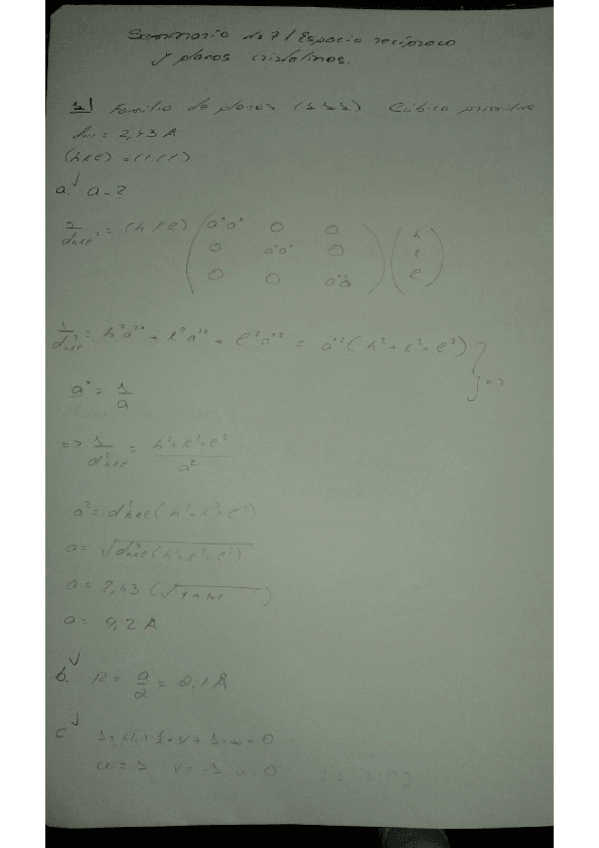 Seminario de 7 / Espacio recíproco
y planos cristalinos.
1) Familia de planos (111) Cúbico primitiva
d₁₁₁ = 2,43 Å
(hkl) = (111)
a. a = ?
1/d²hkl = (h k l) (a*a* 0 0 / 0 a*a* 0 / 0 0 a*a*) (h / k / l)
1/d²hkl = h²a*² + k²a*² + l²a*² = a*²(h² + k² + l²) } =>
a* = 1/a
=> 1/d²hkl = h²+k²+l² / a²
a² = d²hkl(h²+k²+l²)
a = √d²hkl(h²+k²+l²)
a = 2,43 (√1+1+1)
a = 4,2 Å
b. R = a/2 = 2,1 Å
c 1·u + 1·v + 1·w = 0
u = 1 v = -1 w = 0